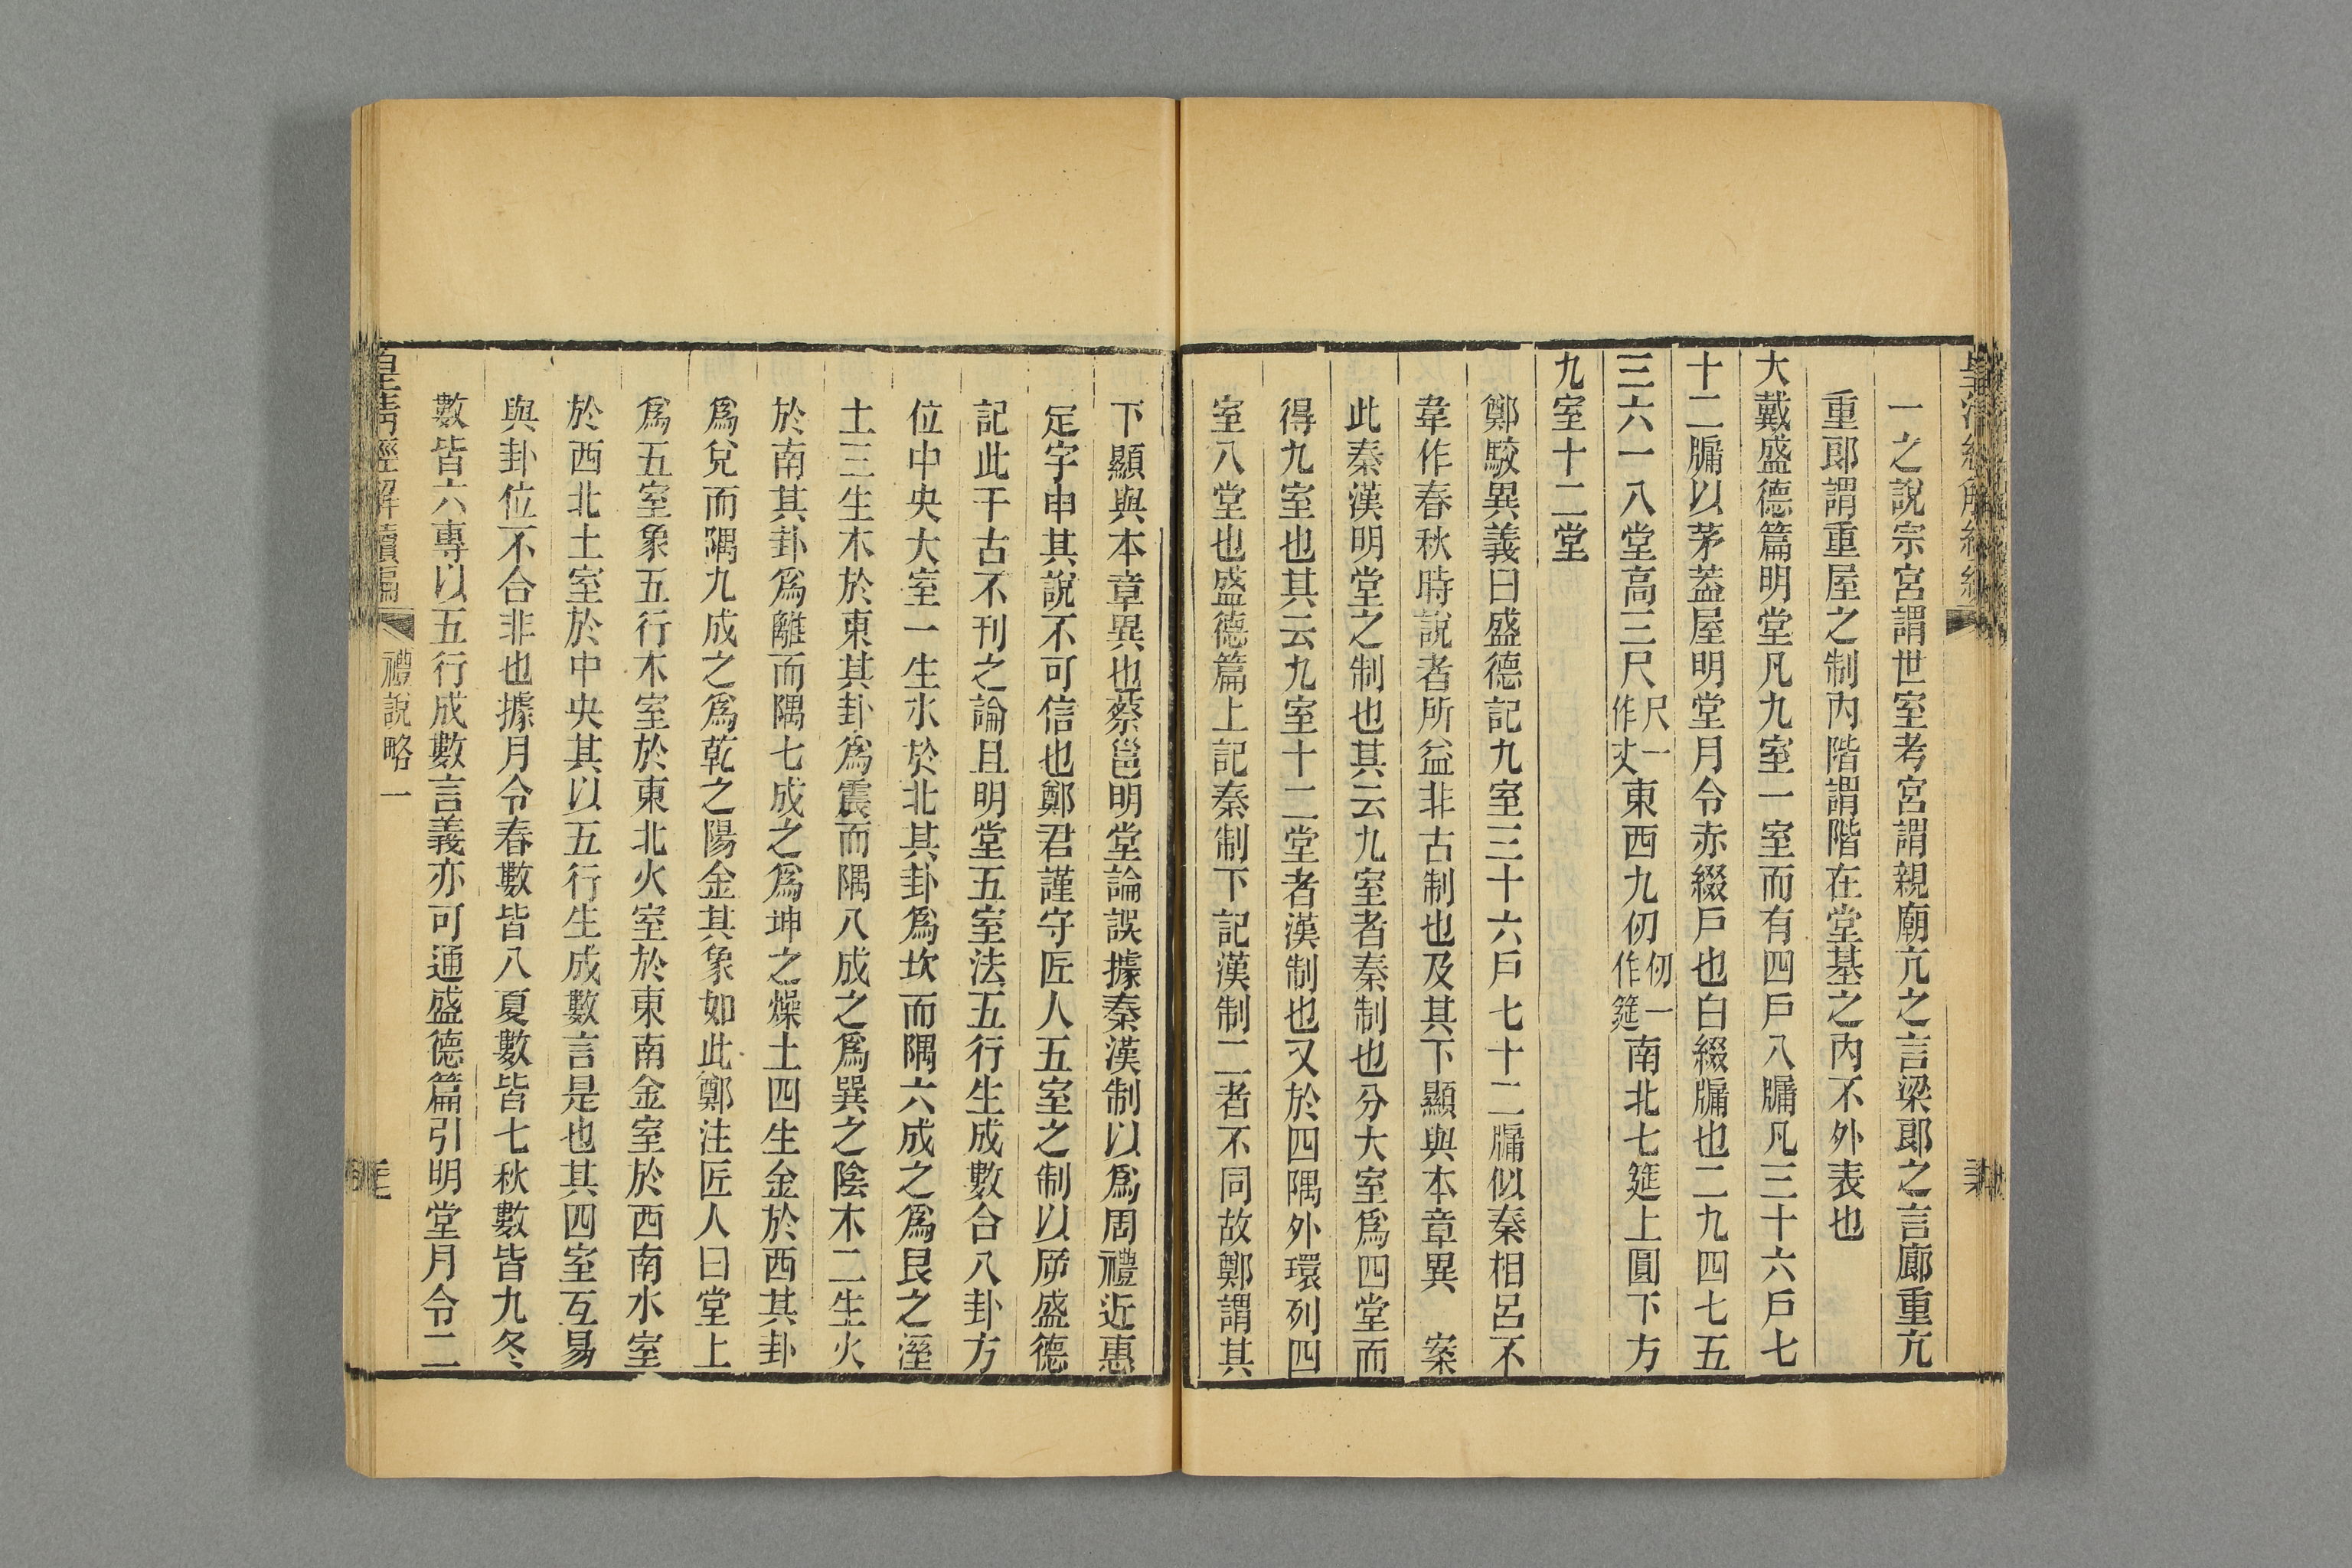 一之說宗宮謂世室考宮謂親廟亢之言梁郞之言廊重亢
重郞謂重屋之制內階謂階在堂基之內不外表也
大戴盛德篇明堂凡九室一室而有四戶八牖凡三十六戶七
十二牖以茅葢屋明堂月令赤綴戶也白綴牖也二九四七五
三六一八堂高三尺尺一作丈東西九仞仞一作筵南北七筵上圓下方
九室十二堂
鄭駮異義曰盛德記九室三十六戶七十二牖似秦相呂不
韋作春秋時說者所益非古制也及其下顯與本章異　案
此秦漢明堂之制也其云九室者秦制也分大室爲四堂而
得九室也其云九室十二堂者漢制也又於四隅外環列四
室八堂也盛德篇上記秦制下記漢制二者不同故鄭謂其
下顯與本章異也蔡邕明堂論誤據秦漢制以爲周禮近惠
定宇申其說不可信也鄭君謹守匠人五室之制以𠩄盛德
記此千古不刊之論且明堂五室法五行生成數合八卦方
位中央大室一生水於北其卦爲坎而隅六成之爲艮之溼
土三生木於東其卦爲震而隅八成之爲巽之陰木二生火
於南其卦爲離而隅七成之爲坤之燥土四生金於西其卦
爲兌而隅九成之爲乾之陽金其象如此鄭注匠人曰堂上
爲五室象五行木室於東北火室於東南金室於西南水室
於西北土室於中央其以五行生成數言是也其四室互易
與卦位不合非也據月令春數皆八夏數皆七秋數皆九冬
數皆六專以五行成數言義亦可通盛德篇引明堂月令二
皇淸經解續編
禮說略一